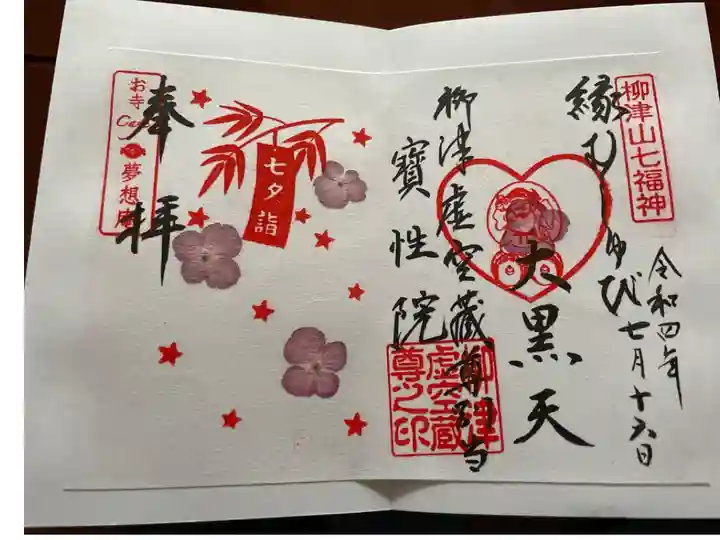 柳津山七福神
令和四年
七月十六日
縁むすび
大黒天
柳津虚空藏尊別当
寳性院
柳津
虚空蔵
尊之印
七夕詣
奉拝
お寺
Cafe
夢想庵